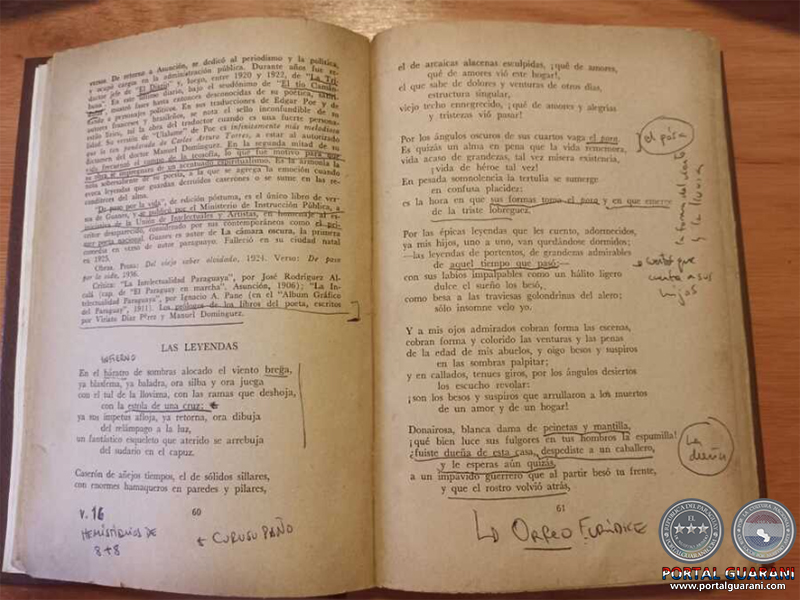 versos. De retorno a Asunción, se dedicó al periodismo y la política,
y ocupó cargos en la administración pública. Durante años fue re-
ductor jefe de "El Diario" y, luego, entre 1920 y 1922, de "La Tri-
buna". En este último diario, bajo el seudónimo de "El tío Camán-
dulas", mostró
dando a personajes políticos. En sus traducciones de Edgar Poe y de
autores franceses y brasileños, se nota el sello inconfundible de su
estilo lírico, tal la obra del traductor como una fuerte persona-
lidad. Su versión de "Ulalume" de Poe es infinitamente más melodiosa
que la tan ponderada de Carlos Arturo Torres, a estar al autorizado
dictamen del doctor Manuel Domínguez. En la segunda mitad de su
vida frecuentó el campo de la teosofía, lo que fue motivo para que
su obra se impregnara de un acentuado espiritualismo. Es la armonía la
nota sobresaliente de su poesía, a la que se agrega la emoción cuando
evoca leyendas que guardan derruidos caserones o se sume en las re-
conditeces del alma.
"De paso por la vida", de edición póstuma, es el único libro de ver-
sos de Guanes, y se publicó por el Ministerio de Instrucción Pública, a
iniciativa de la Unión de Intelectuales y Artistas, en homenaje al es-
critor desaparecido, considerado por sus contemporáneos como el pri-
mer poeta nacional. Guanes es autor de La cámara oscura, la primera
comedia en verso de autor paraguayo. Falleció en su ciudad natal
en 1925.
Obras. Prosa: Del viejo saber olvidado, 1924. Verso: De paso
por la vida, 1936.
Crítica: "La Intelectualidad Paraguaya", por José Rodríguez Al-
calá (cap. de "El Paraguay en marcha". Asunción, 1906); "La In-
telectualidad Paraguaya", por Ignacio A. Pane (en el "Album Gráfico
del Paraguay", 1911). Los prólogos de los libros del poeta, escritos
por Viriato Díaz Pérez y Manuel Domínguez.
LAS LEYENDAS
INFIERNO
En el hiestro de sombras alocado el viento brega,
ya blasfema, ya baladra, ora silba y ora juega
con el tul de la llovizna, con las ramas que deshoja,
con la estola de una cruz;
ya sus ímpetus afloja, ya retorna, ora dibuja
del relámpago a la luz,
un fantástico esqueleto que aterido se arrebuja
del sudario en el capuz.
Caserón de añejos tiempos, el de sólidos sillares,
con enormes hamaqueros en paredes y pilares,
60
V. 16
HEMISTIQUIOS DE
8+8
+ CURUGUPAÑO
el de arcaicas alacenas esculpidas, ¡qué de amores,
qué de amores vió este hogar!,
el que sabe de dolores y venturas de otros días,
estructura singular,
viejo techo ennegrecido, ¡qué de amores y alegrías
y tristezas vió pasar!
Por los ángulos oscuros de sus cuartos vaga el pora.
Es quizás un alma en pena que la vida rememora,
vida acaso de grandezas, tal vez mísera existencia,
¡vida de héroe tal vez!
En pesada somnolencia la tertulia se sumerge
en confusa placidez:
es la hora en que sus formas toma el pora y en que emerge
de la triste lobreguez.
el póra
la forma del viento
y la lluvia
Por las épicas leyendas que les cuento, adormecidos,
ya mis hijos, uno a uno, van quedándose dormidos;
—las leyendas de portentos, de grandezas admirables
de aquel tiempo que pasó;—
con sus labios impalpables como un hálito ligero
dulce el sueño los besó,
como besa a las traviesas golondrinas del alero;
sólo insomne velo yo.
que
cuenta a sus
hijos
Y a mis ojos admirados cobran forma las escenas,
cobran forma y colorido las venturas y las penas
de la edad de mis abuelos, y oigo besos y suspiros
en las sombras palpitar;
y en callados, tenues giros, por los ángulos desiertos
los escucho revolar:
¡son los besos y suspiros que arrullaron a los muertos
de un amor y de un hogar!
Donairosa, blanca dama de peinetas y mantilla,
¡qué bien luce sus fulgores en tus hombros la espumilla!
¿fuiste dueña de esta casa, despediste a un caballero,
y le esperas aún quizás,
a un impávido guerrero que al partir besó tu frente,
y que el rostro volvió atrás,
La
dueña
61
ORFEO EURÍDICE
PORTAL GUARANI
www.portalguarani.com